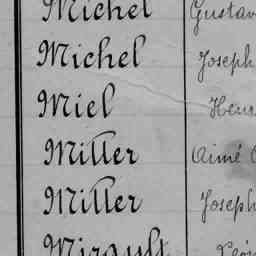 Michel Gustav
Michel Joseph
Miel Henr
Miller Aimé
Miller Joseph
Mirault Léon